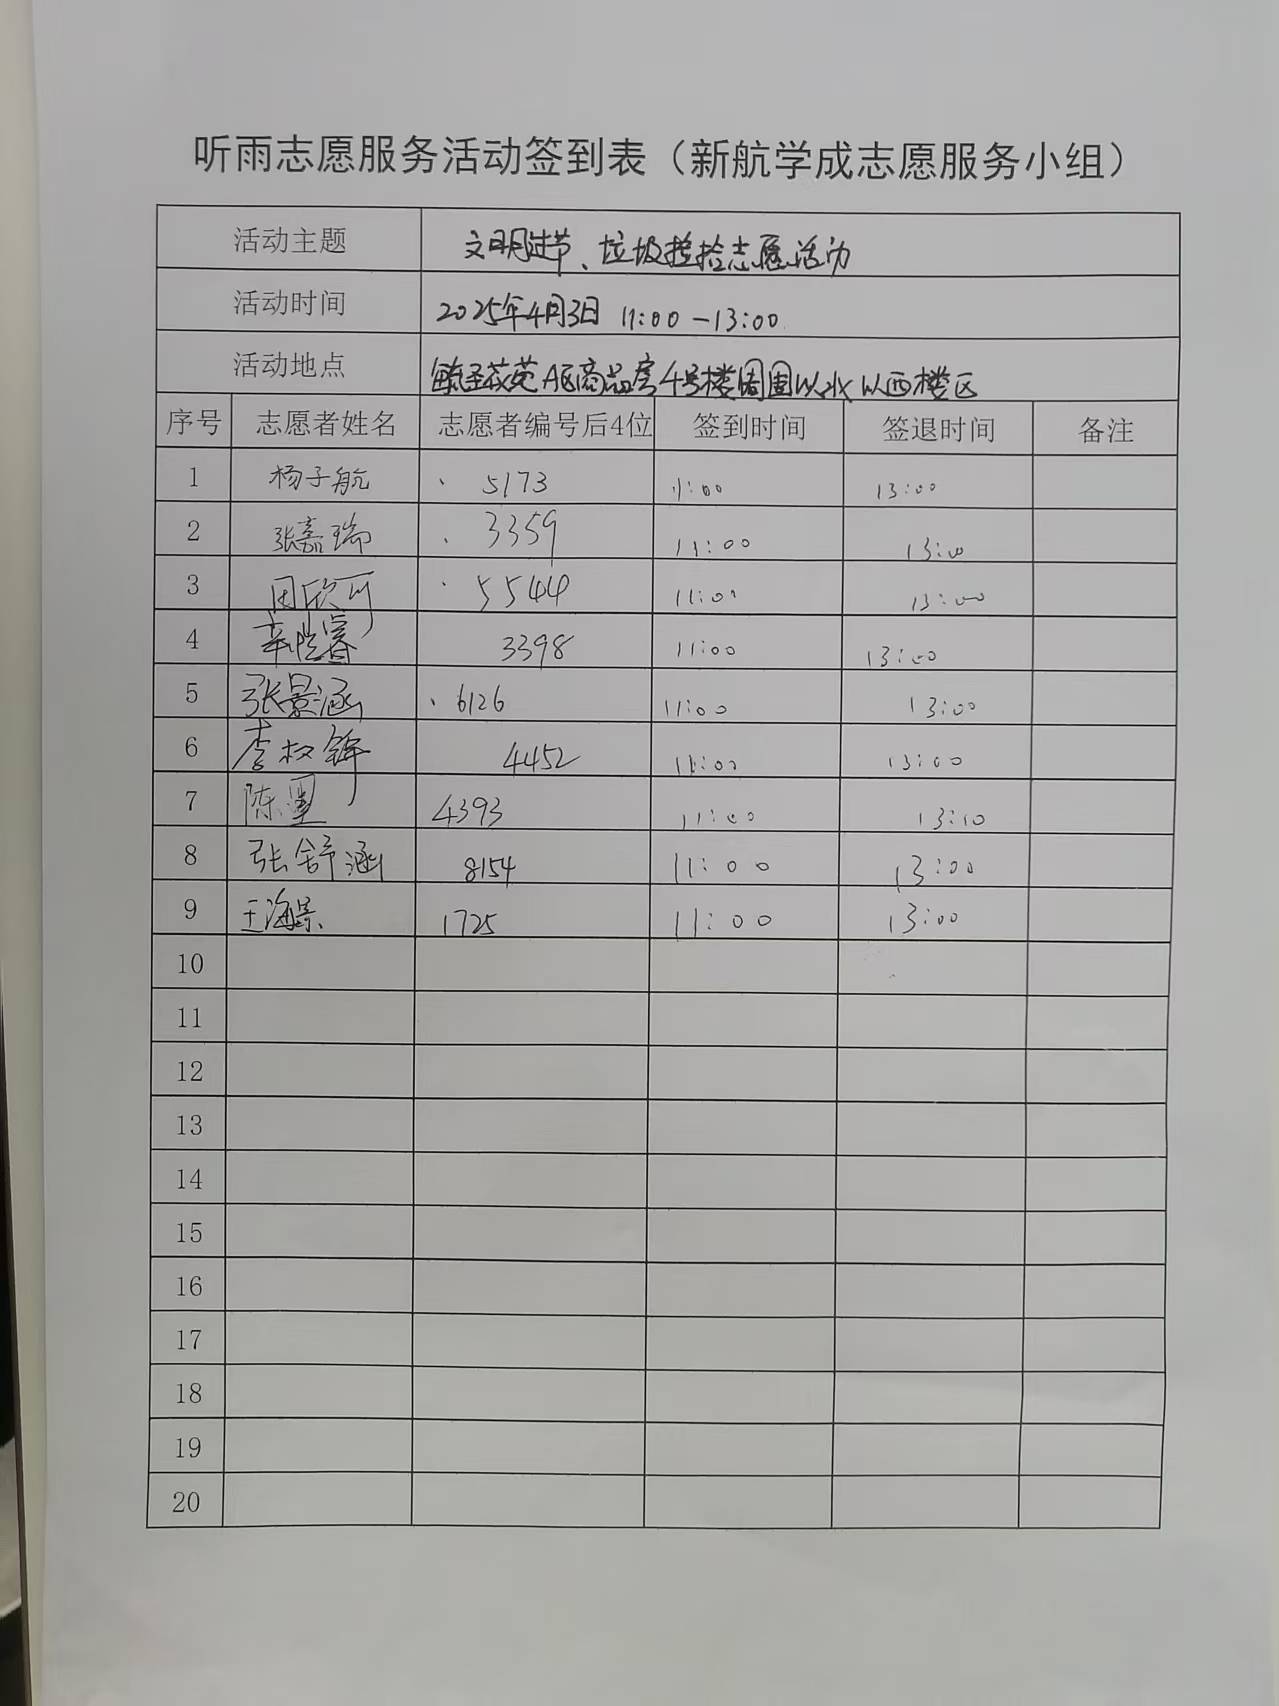 听雨志愿服务活动签到表（新航学成志愿服务小组）
活动主题 文明过节、垃圾捡拾志愿活动
活动时间 2025年4月3日 11:00-13:00
活动地点 A区商品房4号楼周围以北以西楼区
序号 志愿者姓名 志愿者编号后4位 签到时间 签退时间 备注
1 杨子航 5173 11:00 13:00
2 张嘉瑞 3359 11:00 13:00
3 田欣可 5544 11:00 13:00
4 3398 11:00 13:00
5 张景涵 6126 11:00 13:00
6 李权锋 4452 11:00 13:00
7 陈 4393 11:00 13:10
8 张舒涵 8154 11:00 13:00
9 王海景 1725 11:00 13:00
10
11
12
13
14
15
16
17
18
19
20